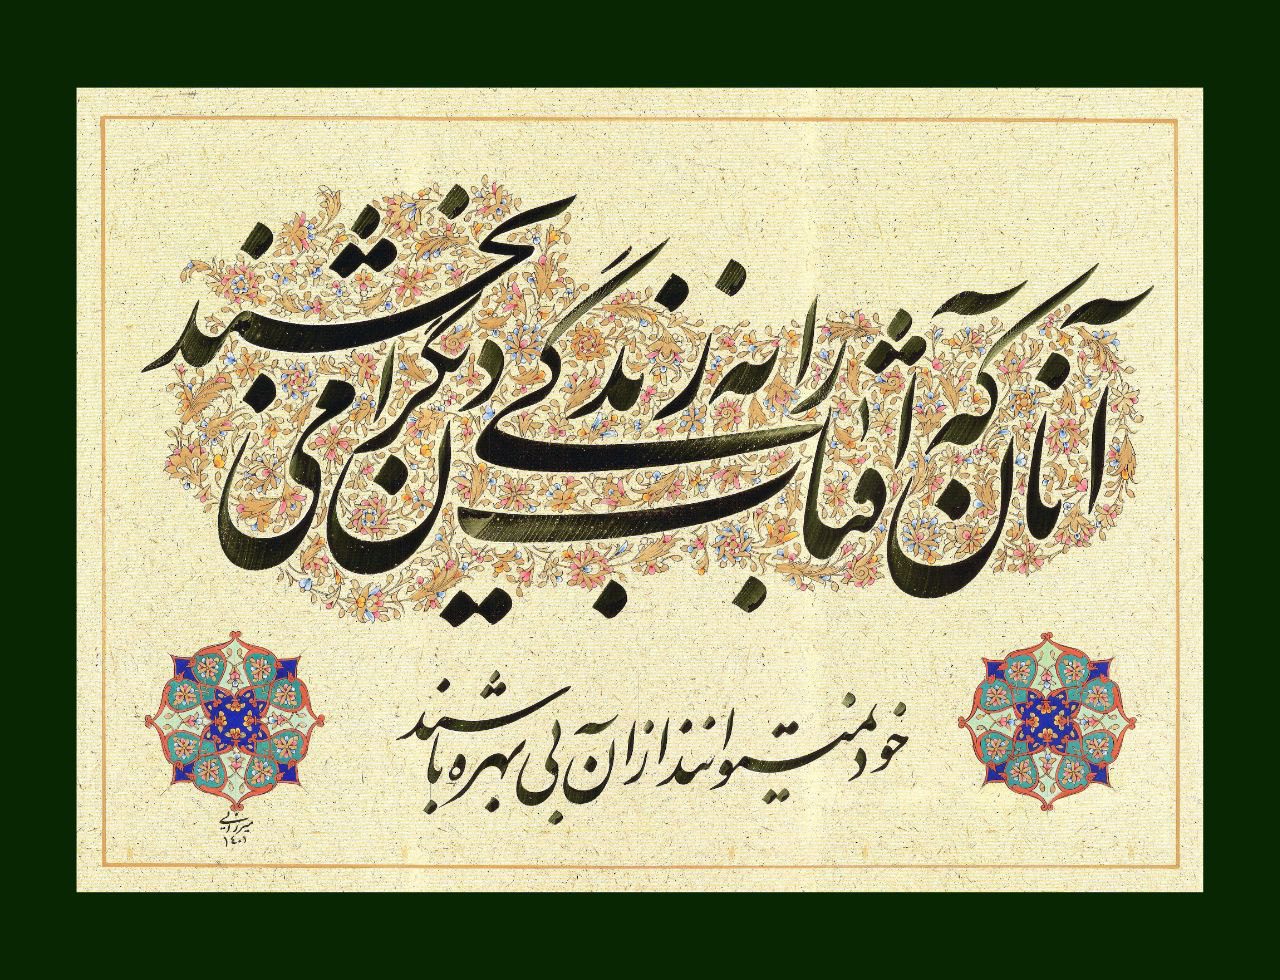 آنان که آفتاب را به زندگی دیگران می بخشند
خود نمیتوانند از آن بی بهره باشند
میرزایی
۱۴۰۱